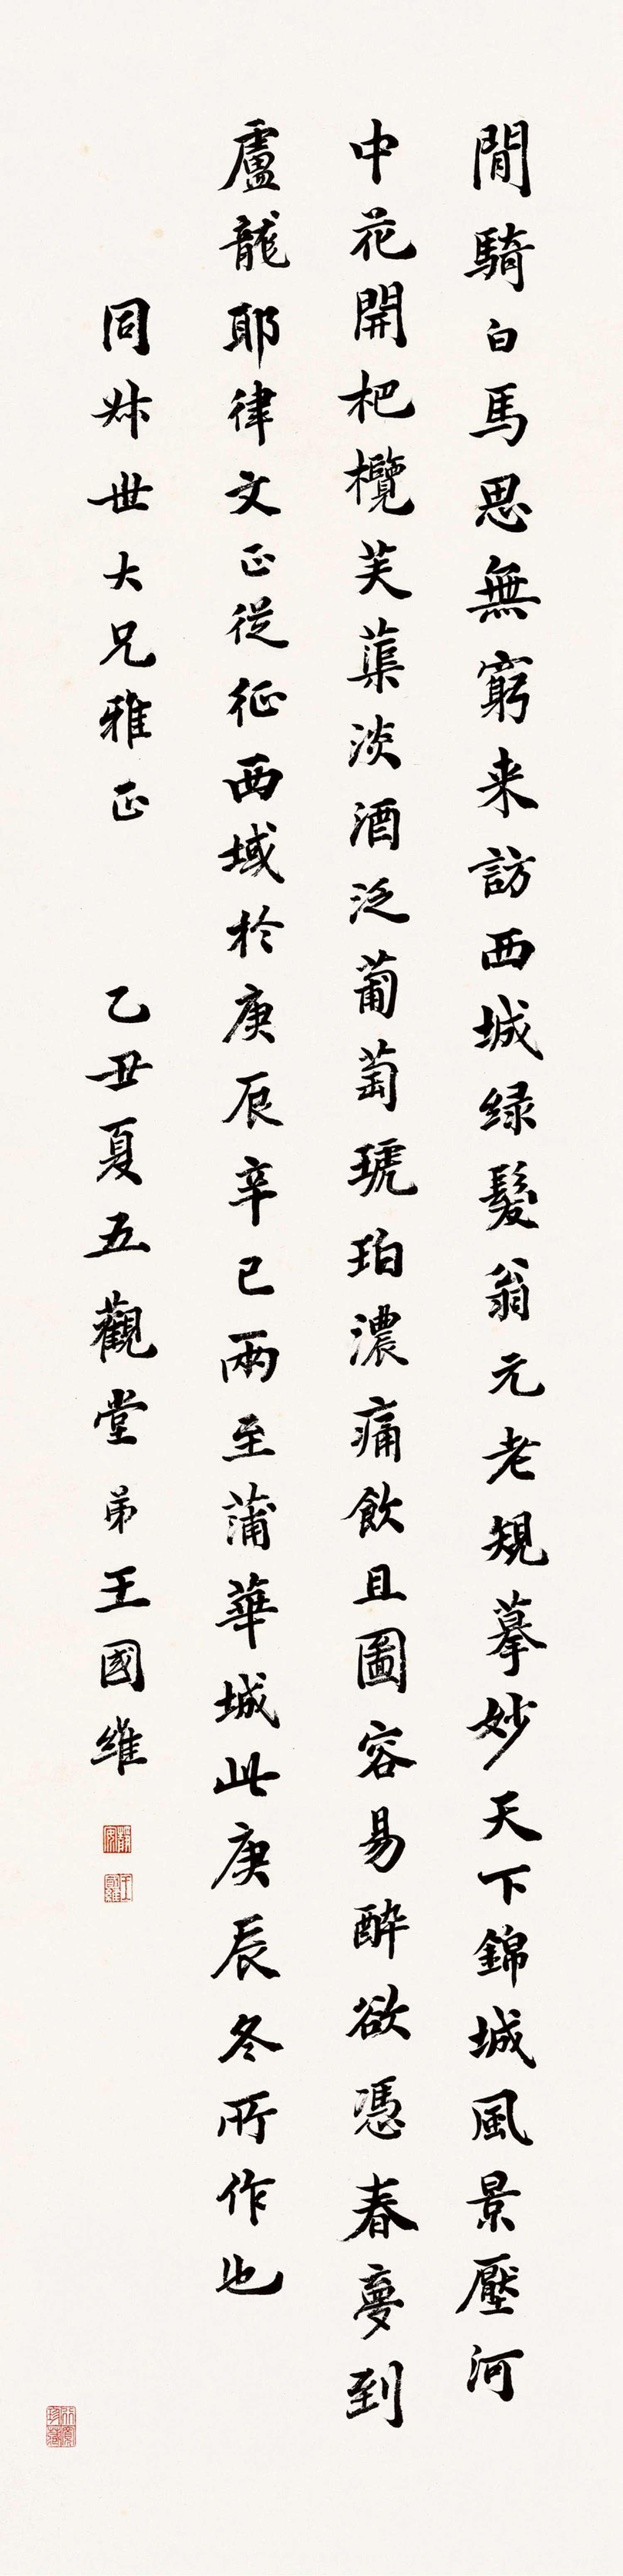 閒騎白馬思無窮来訪西城緑髮翁元老規摹妙天下錦城風景壓河
中花開杷欖芙蕖淡酒泛葡萄琥珀濃痛飲且圖容易醉欲憑春夢到
盧龍耶律文正從征西域於庚辰辛巳兩至蒲華城此庚辰冬所作也
同叔世大兄雅正 乙丑夏五觀堂弟王國維